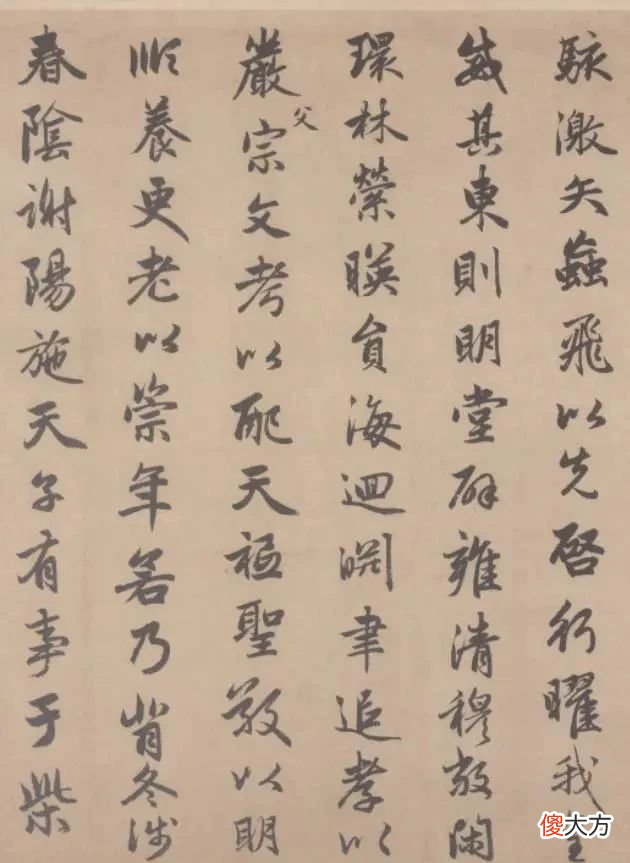 駭激矢蝱飛以先啓行曜我皇
威其東則明堂辟雍清穆敞閑
環林縈暎員海迴淵聿追孝以
嚴父宗文考以配天祗聖敬以明
順養更老以崇年若乃背冬涉
春陰謝陽施天子有事于柴
傻大方